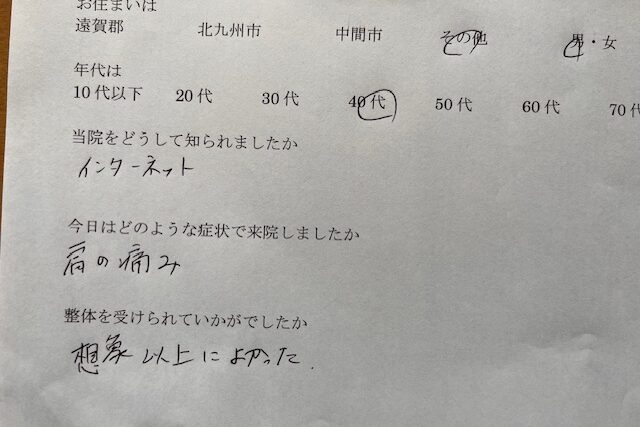 お住まいは
遠賀郡 北九州市 中間市 その他 男・女
年代は
10代以下 20代 30代 40代 50代 60代 70代
当院をどうして知られましたか
インターネット
今日はどのような症状で来院しましたか
肩の痛み
整体を受けられていかがでしたか
想象以上によかった.